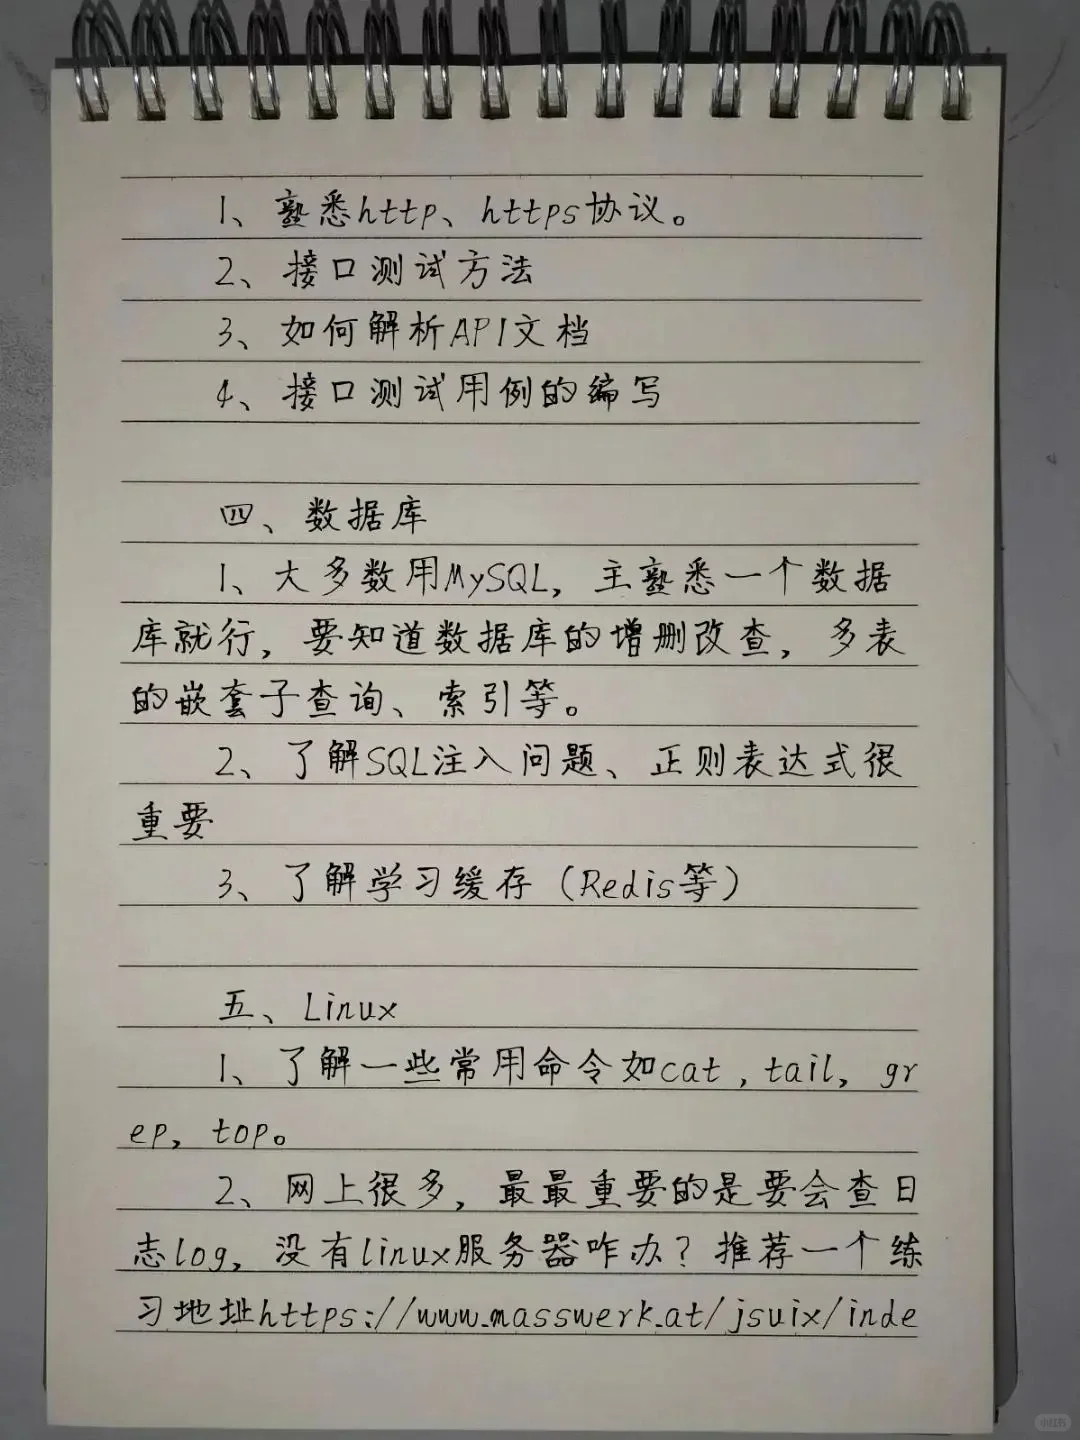 1、熟悉http、https协议。
2、接口测试方法
3、如何解析API文档
4、接口测试用例的编写
四、数据库
1、大多数用MySQL，主熟悉一个数据
库就行，要知道数据库的增删改查，多表
的嵌套子查询、索引等。
2、了解SQL注入问题、正则表达式很
重要
3、了解学习缓存（Redis等）
五、Linux
1、了解一些常用命令如cat，tail，gr
ep，top。
2、网上很多，最最重要的是要会查日
志log，没有linux服务器咋办？推荐一个练
习地址https://www.masswerk.at/jsuix/inde
小红书